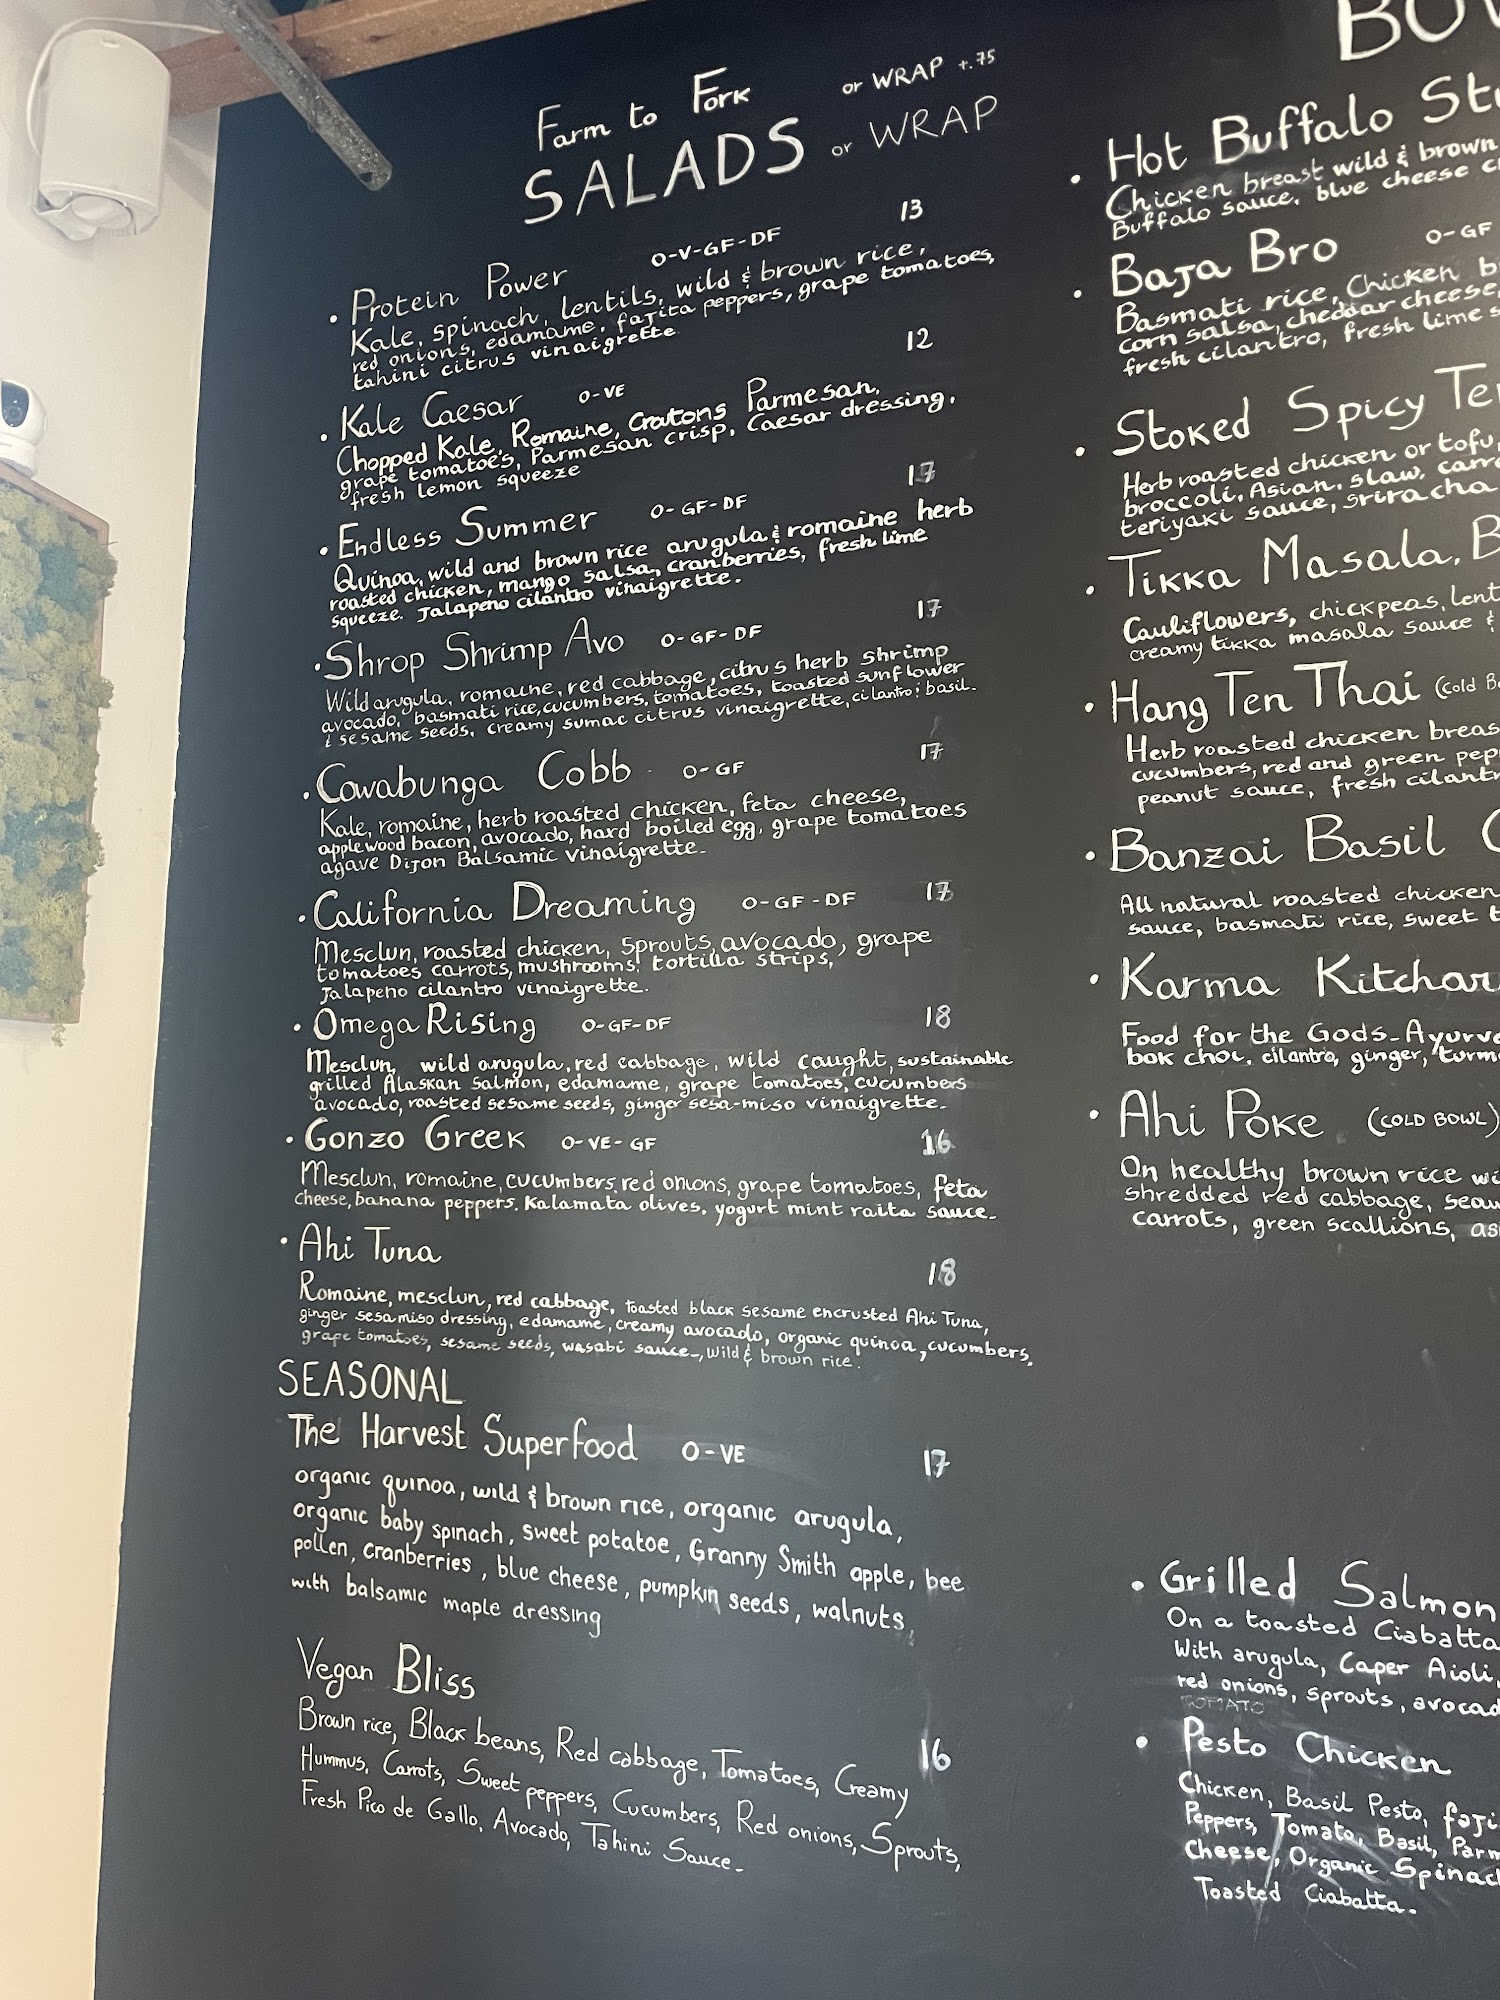 Farm to Fork or WRAP +.75
SALADS or WRAP
• Protein Power O-V-GF-DF 13
Kale, spinach, lentils, wild & brown rice,
red onions, edamame, fajita peppers, grape tomatoes,
tahini citrus vinaigrette
• Kale Caesar O-VE 12
Chopped Kale, Romaine, Croutons Parmesan,
grape tomatoes, Parmesan crisp, Caesar dressing,
fresh lemon squeeze
• Endless Summer O-GF-DF 17
Quinoa, wild and brown rice arugula & romaine herb
roasted chicken, mango salsa, cranberries, fresh lime
squeeze. Jalapeno cilantro vinaigrette.
• Shrop Shrimp Avo O-GF-DF 17
Wild arugula, romaine, red cabbage, citrus herb shrimp
avocado, basmati rice, cucumbers, tomatoes, toasted sunflower
& sesame seeds, creamy sumac citrus vinaigrette, cilantro & basil.
• Cowabunga Cobb O-GF 17
Kale, romaine, herb roasted chicken, feta cheese,
applewood bacon, avocado, hard boiled egg, grape tomatoes
agave Dijon Balsamic vinaigrette.
• California Dreaming O-GF-DF 17
Mesclun, roasted chicken, Sprouts, avocado, grape
tomatoes carrots, mushrooms, tortilla strips,
Jalapeno cilantro vinaigrette.
• Omega Rising O-GF-DF 18
Mesclun, wild arugula, red cabbage, wild caught, sustainable
grilled Alaskan Salmon, edamame, grape tomatoes, cucumbers
avocado, roasted sesame seeds, ginger sesa-miso vinaigrette.
• Gonzo Greek O-VE-GF 16
Mesclun, romaine, cucumbers, red onions, grape tomatoes, feta
cheese, banana peppers. Kalamata olives. yogurt mint raita sauce.
• Ahi Tuna 18
Romaine, mesclun, red cabbage, toasted black sesame encrusted Ahi Tuna,
ginger sesa miso dressing, edamame, creamy avocado, organic quinoa, cucumbers,
grape tomatoes, sesame seeds, wasabi sauce, wild & brown rice.
SEASONAL
The Harvest Superfood O-VE 17
organic quinoa, wild & brown rice, organic arugula,
organic baby spinach, sweet potatoe, Granny Smith apple, bee
pollen, cranberries, blue cheese, pumpkin seeds, walnuts,
with balsamic maple dressing
Vegan Bliss 16
Brown rice, Black beans, Red cabbage, Tomatoes, Creamy
Hummus, Carrots, Sweet peppers, Cucumbers, Red onions, Sprouts,
Fresh Pico de Gallo, Avocado, Tahini Sauce.
BOW
• Hot Buffalo St
Chicken breast wild & brown
Buffalo sauce, blue cheese c
• Baja Bro O-GF
Basmati rice, Chicken b
corn salsa, cheddar cheese,
fresh cilantro, fresh lime s
• Stoked Spicy Te
Herb roasted chicken or tofu,
broccoli, Asian, slaw, carr
teriyaki sauce, sriracha
• Tikka Masala, B
Cauliflowers, chickpeas, lent
creamy tikka masala sauce &
• Hang Ten Thai (Cold B
Herb roasted chicken breas
cucumbers, red and green pep
peanut sauce, fresh cilant
• Banzai Basil C
All natural roasted chicken
sauce, basmati rice, sweet
• Karma Kitchar
Food for the Gods-Ayurve
bok choi, cilantro, ginger, turm
• Ahi Poke (COLD BOWL)
On healthy brown rice wi
shredded red cabbage, seaw
carrots, green scallions, as
• Grilled Salmon
On a toasted Ciabatta
With arugula, Caper Aioli,
red onions, sprouts, avocad
TOMATO
• Pesto Chicken
Chicken, Basil Pesto, faji
Peppers, Tomato, Basil, Parm
Cheese, Organic Spinach
Toasted Ciabatta.